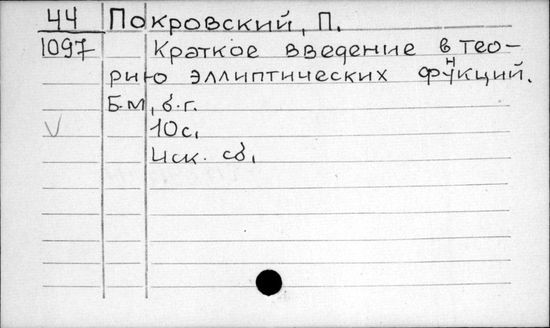 44 Покровский, П.
1097 Краткое введение в тео-
рию эллиптических функций.
Б.м, б.г.
V 10с.
Иск. сб.